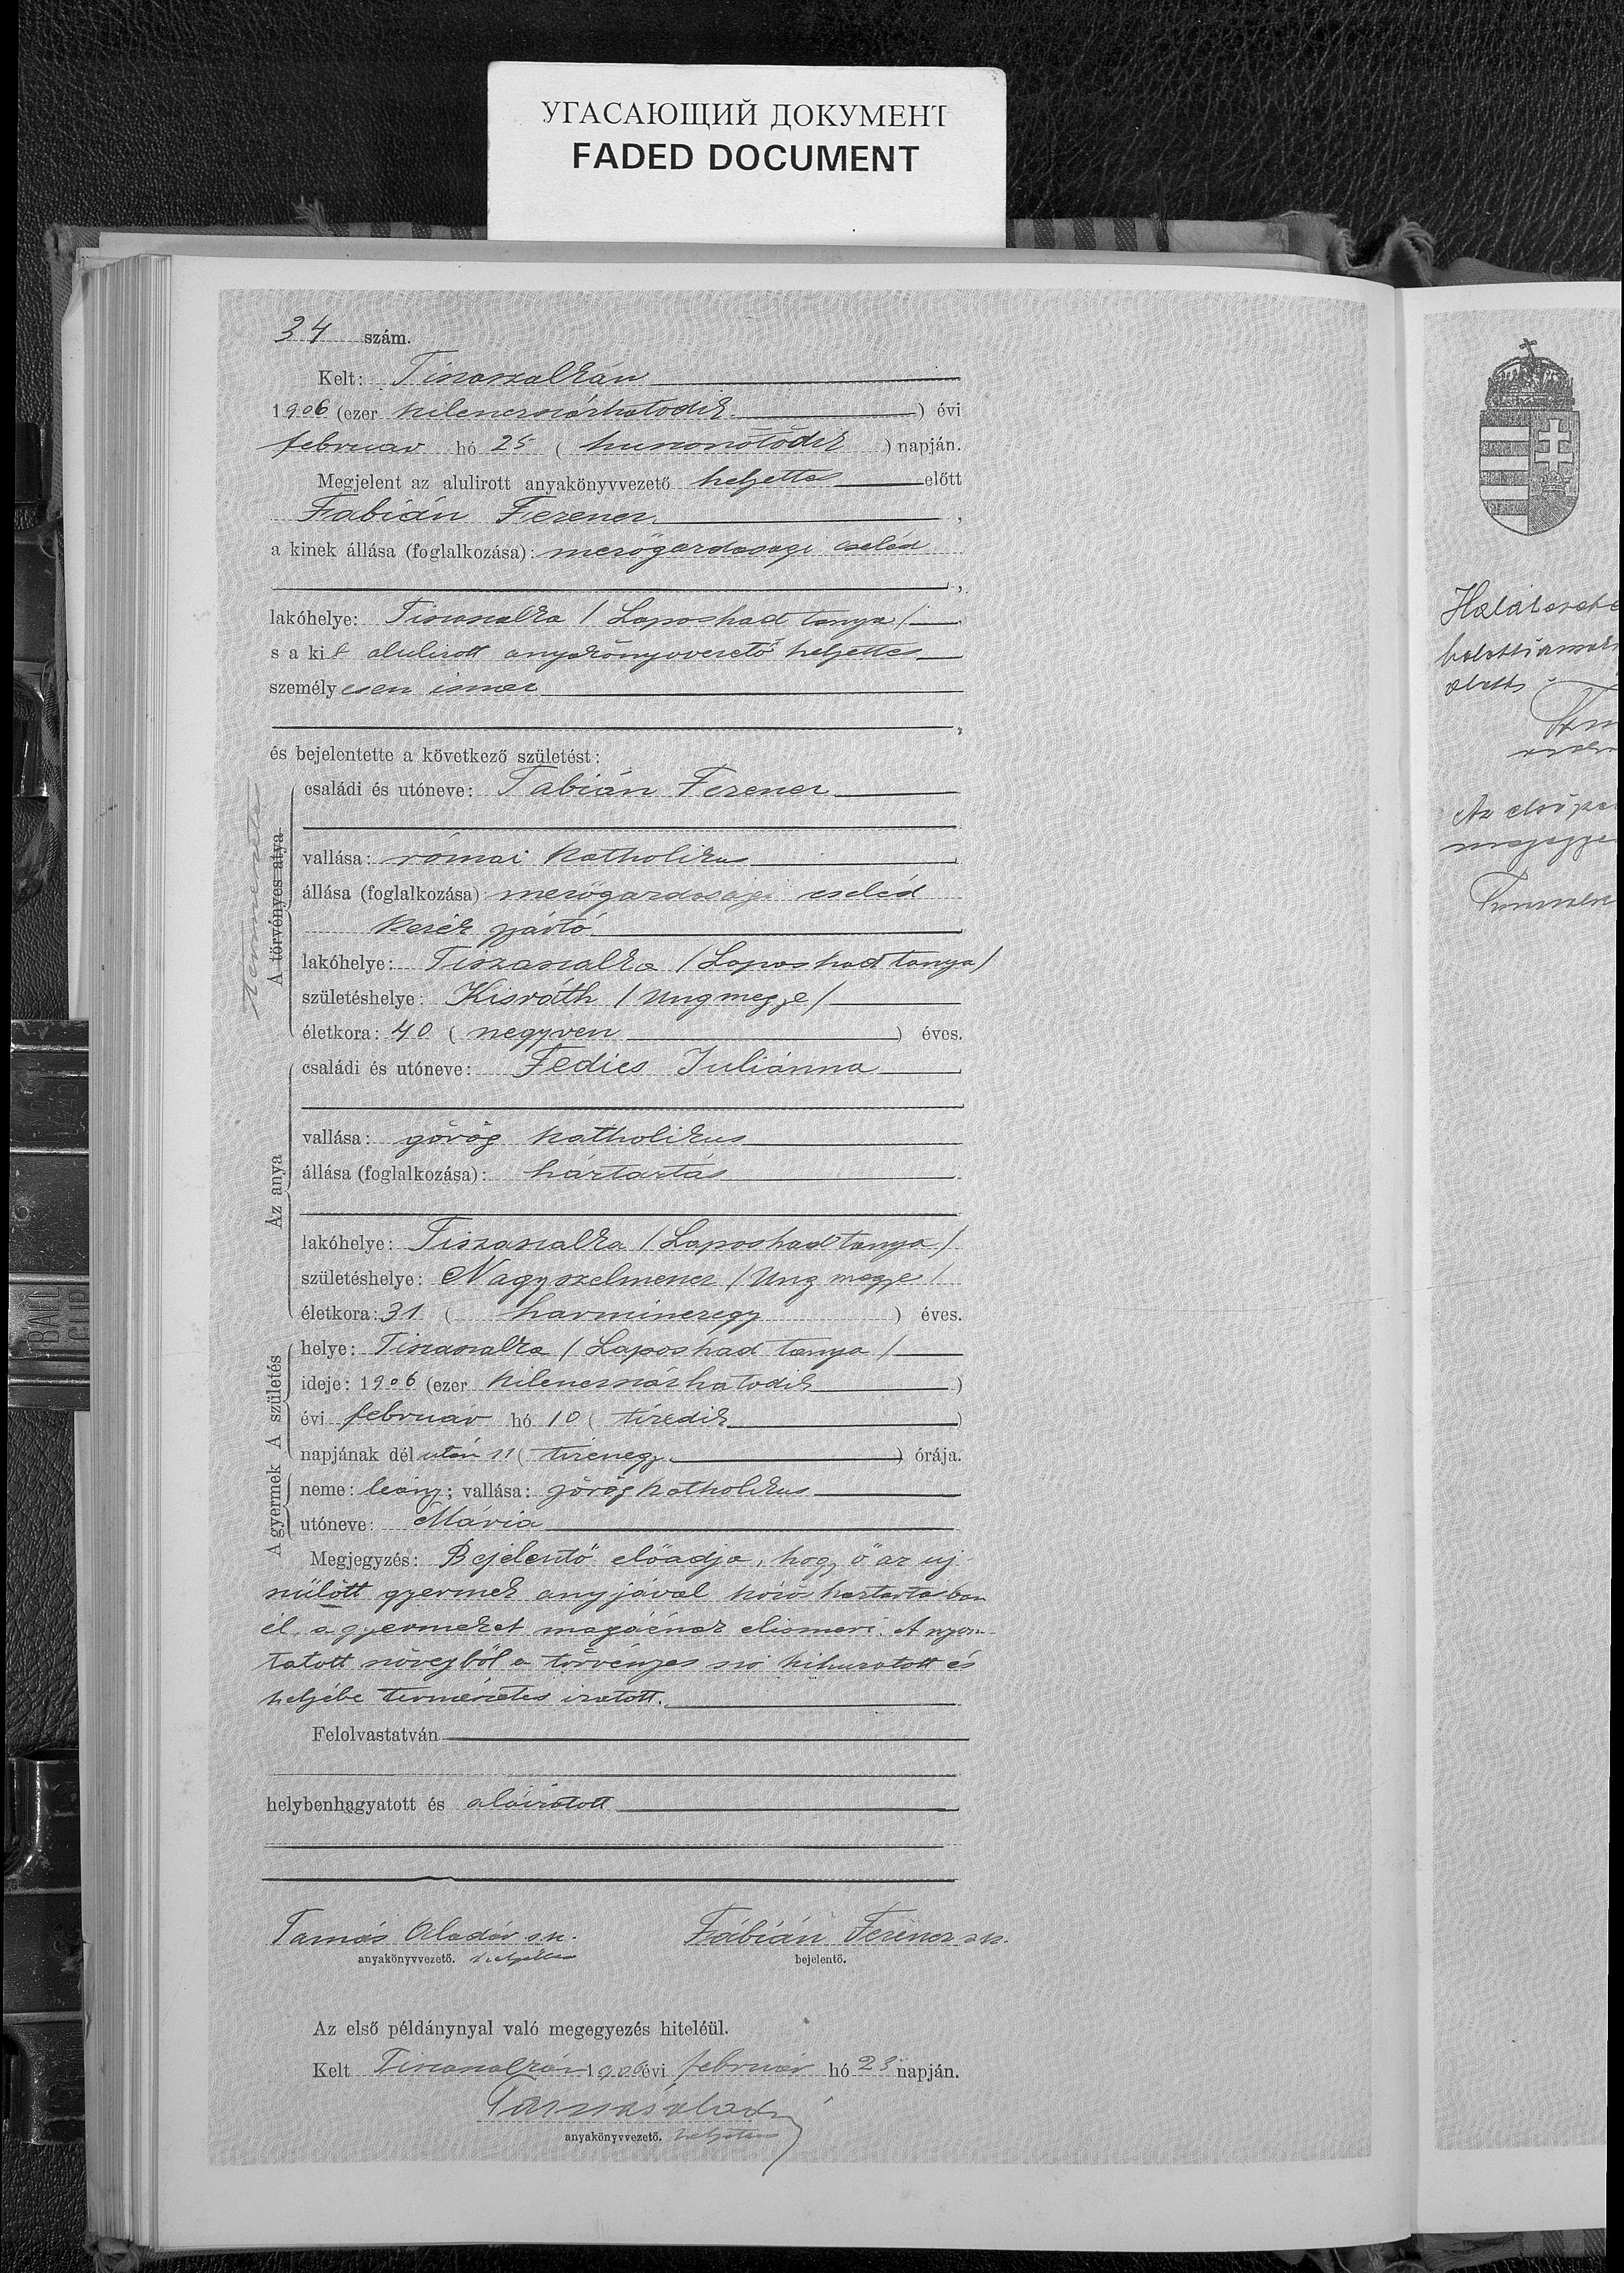 УГАСАЮЩИЙ ДОКУМЕНТ
FADED DOCUMENT
34 szám.
Kelt: Tiszaszalkán
1906 (ezer kilencszázhatodik) évi
február hó 25 (huszonötödik) napján.
Megjelent az alulirott anyakönyvvezető helyettes előtt
Fabián Ferencz,
a kinek állása (foglalkozása): mezőgazdasagi cseléd
,
lakóhelye: Tiszaszalka / Laposhad tanya /
s a kit alulirott anyakönyvvezető helyettes
személyesen ismer
,
és bejelentette a következő születést:
Természetes
A törvényes atya
családi és utóneve: Fabián Ferencz
vallása: római katholikus
állása (foglalkozása): mezőgazdasagi cseléd
kerék gyártó
lakóhelye: Tiszaszalka / Laposhad tanya /
születéshelye: Kisráth / Ungmegye /
életkora: 40 (negyven) éves.
Az anya
családi és utóneve: Fedics Juliánna
vallása: görög katholikus
állása (foglalkozása): háztartás
lakóhelye: Tiszaszalka / Laposhad tanya /
születéshelye: Nagyszelmencz / Ung megye /
életkora: 31 (harminczegy) éves.
A születés
helye: Tiszaszalka / Laposhad tanya /
ideje: 1906 (ezer kilencszázhatodik)
évi február hó 10 (tizedik)
napjának dél után 11 (tizenegy) órája.
A gyermek
neme: leány; vallása: görög katholikus
utóneve: Mária
Megjegyzés: Bejelentő előadja, hogy ő az uj
szülött gyermek anyjával közös haztartásban
él, a gyermeket magáénak elismeri. A nyom-
tatott szövegből a törvényes szó kihuzatott és
helyébe természetes iratott.
Felolvastatván
helybenhagyatott és aláiratott
Tamás Aladár s.k. Fábián Ferencz s.k.
anyakönyvvezető. helyettes bejelentő.
Az első példánynyal való megegyezés hiteléül.
Kelt Tiszaszalkán 1906 évi február hó 25 napján.
Tamás Aladár
anyakönyvvezető. helyettes